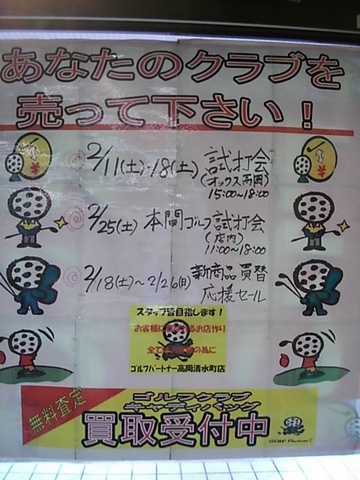 あなたのクラブを
売って下さい！
2/11(土)・18(土) 試打会
(オックス高岡)
15:00~18:00
2/25(土) 本間ゴルフ試打会
(店内)
11:00~18:00
2/18(土)～2/26(日) 新商品買替
応援セール
スタッフ皆目指します！
お客様に れるお店作り
全て の為に
ゴルフパートナー高岡清水町店
無料査定
ゴルフクラブ
キャディバッグ
買取受付中
GOLF Partner